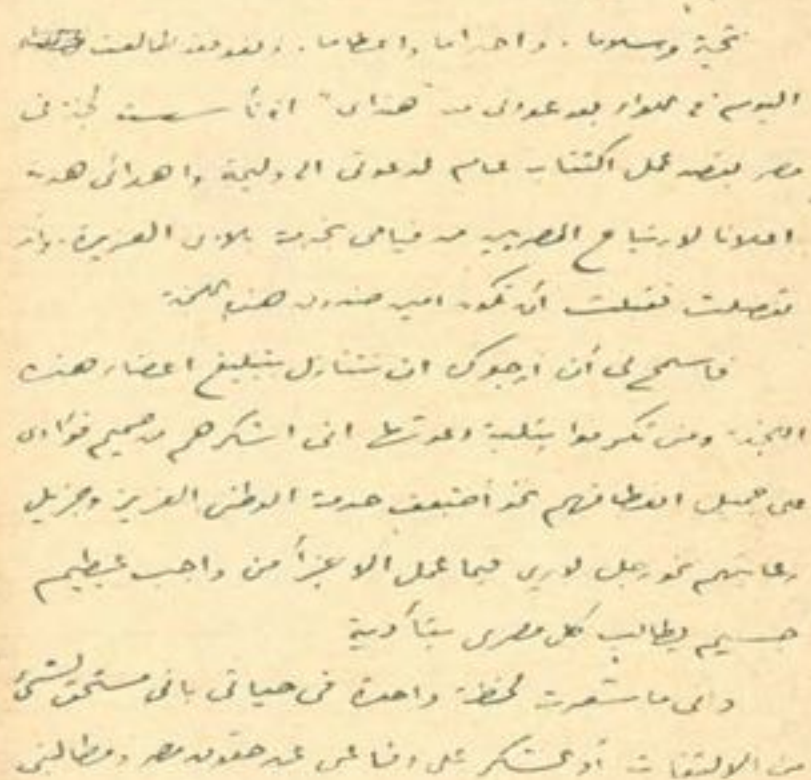 تحية وسلاما . واحتراما واعظاما . وبعد فقد طالعت
اليوم في اللواء بعد عودتي من "هنداى" انه تأسست لجنة في
مصر بقصد عمل اكتتاب عام لدعوتى الى وليمة واهدائى هدية
اعلانا لارتياح المصريين من قيامى بخدمة بلادى العزيزة . وانك
تفضلت فقبلت أن تكون امين صندوق هذه اللجنة
فاسمح لى أن أرجوك ان تتنازل بتبليغ اعضاء هذه
اللجنة ومن تكرموا بتلبية دعوتها انى اشكرهم من صميم فؤادى
على جميل انعطافهم نحو أضعف خدمة الوطن العزيز وجزيل
رعايتهم نحو رجل لا يرى فيما عمل الا جزأ من واجب عظيم
جسيم يطالب كل مصرى بتأديته
وانى ما شعرت لحظة واحدة فى حياتى بانى مستحق لشئ
من الالتفات أو الشكر على دفاعى عن حقوق مصر ومطالبتى